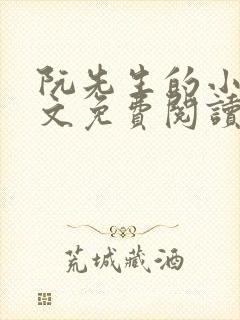 阮先生的小
文免費閱讀
荒城藏酒